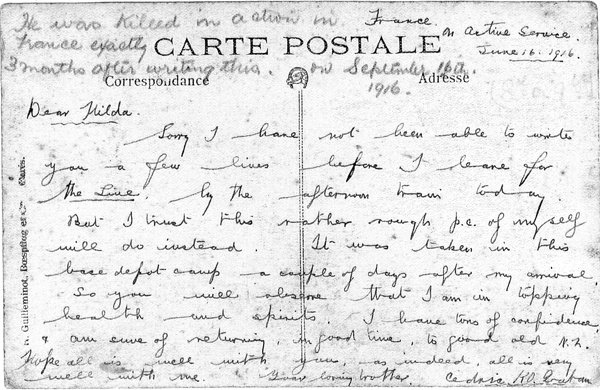 He was Killed in action in
France exactly
3 months after writing this. on September 16th.
1916.
France.
On Active Service.
June 16. 1916.
CARTE POSTALE
Correspondance
Adresse
Dear Hilda.
Sorry I have not been able to write
you a few lines before I leave for
the Line. by the afternoon train today.
But I trust this rather rough p.c. of myself
will do instead. It was taken in this
base depot camp a couple of days after my arrival.
So you will observe that I am in topping
health and spirits. I have tons of confidence,
& am sure of returning, in good time, to good old N.Z.
Hope all is well with you, as indeed all is very
well with me. Your loving brother. Cedric
A. Guilleminot, Bœspflug et Cie Paris.